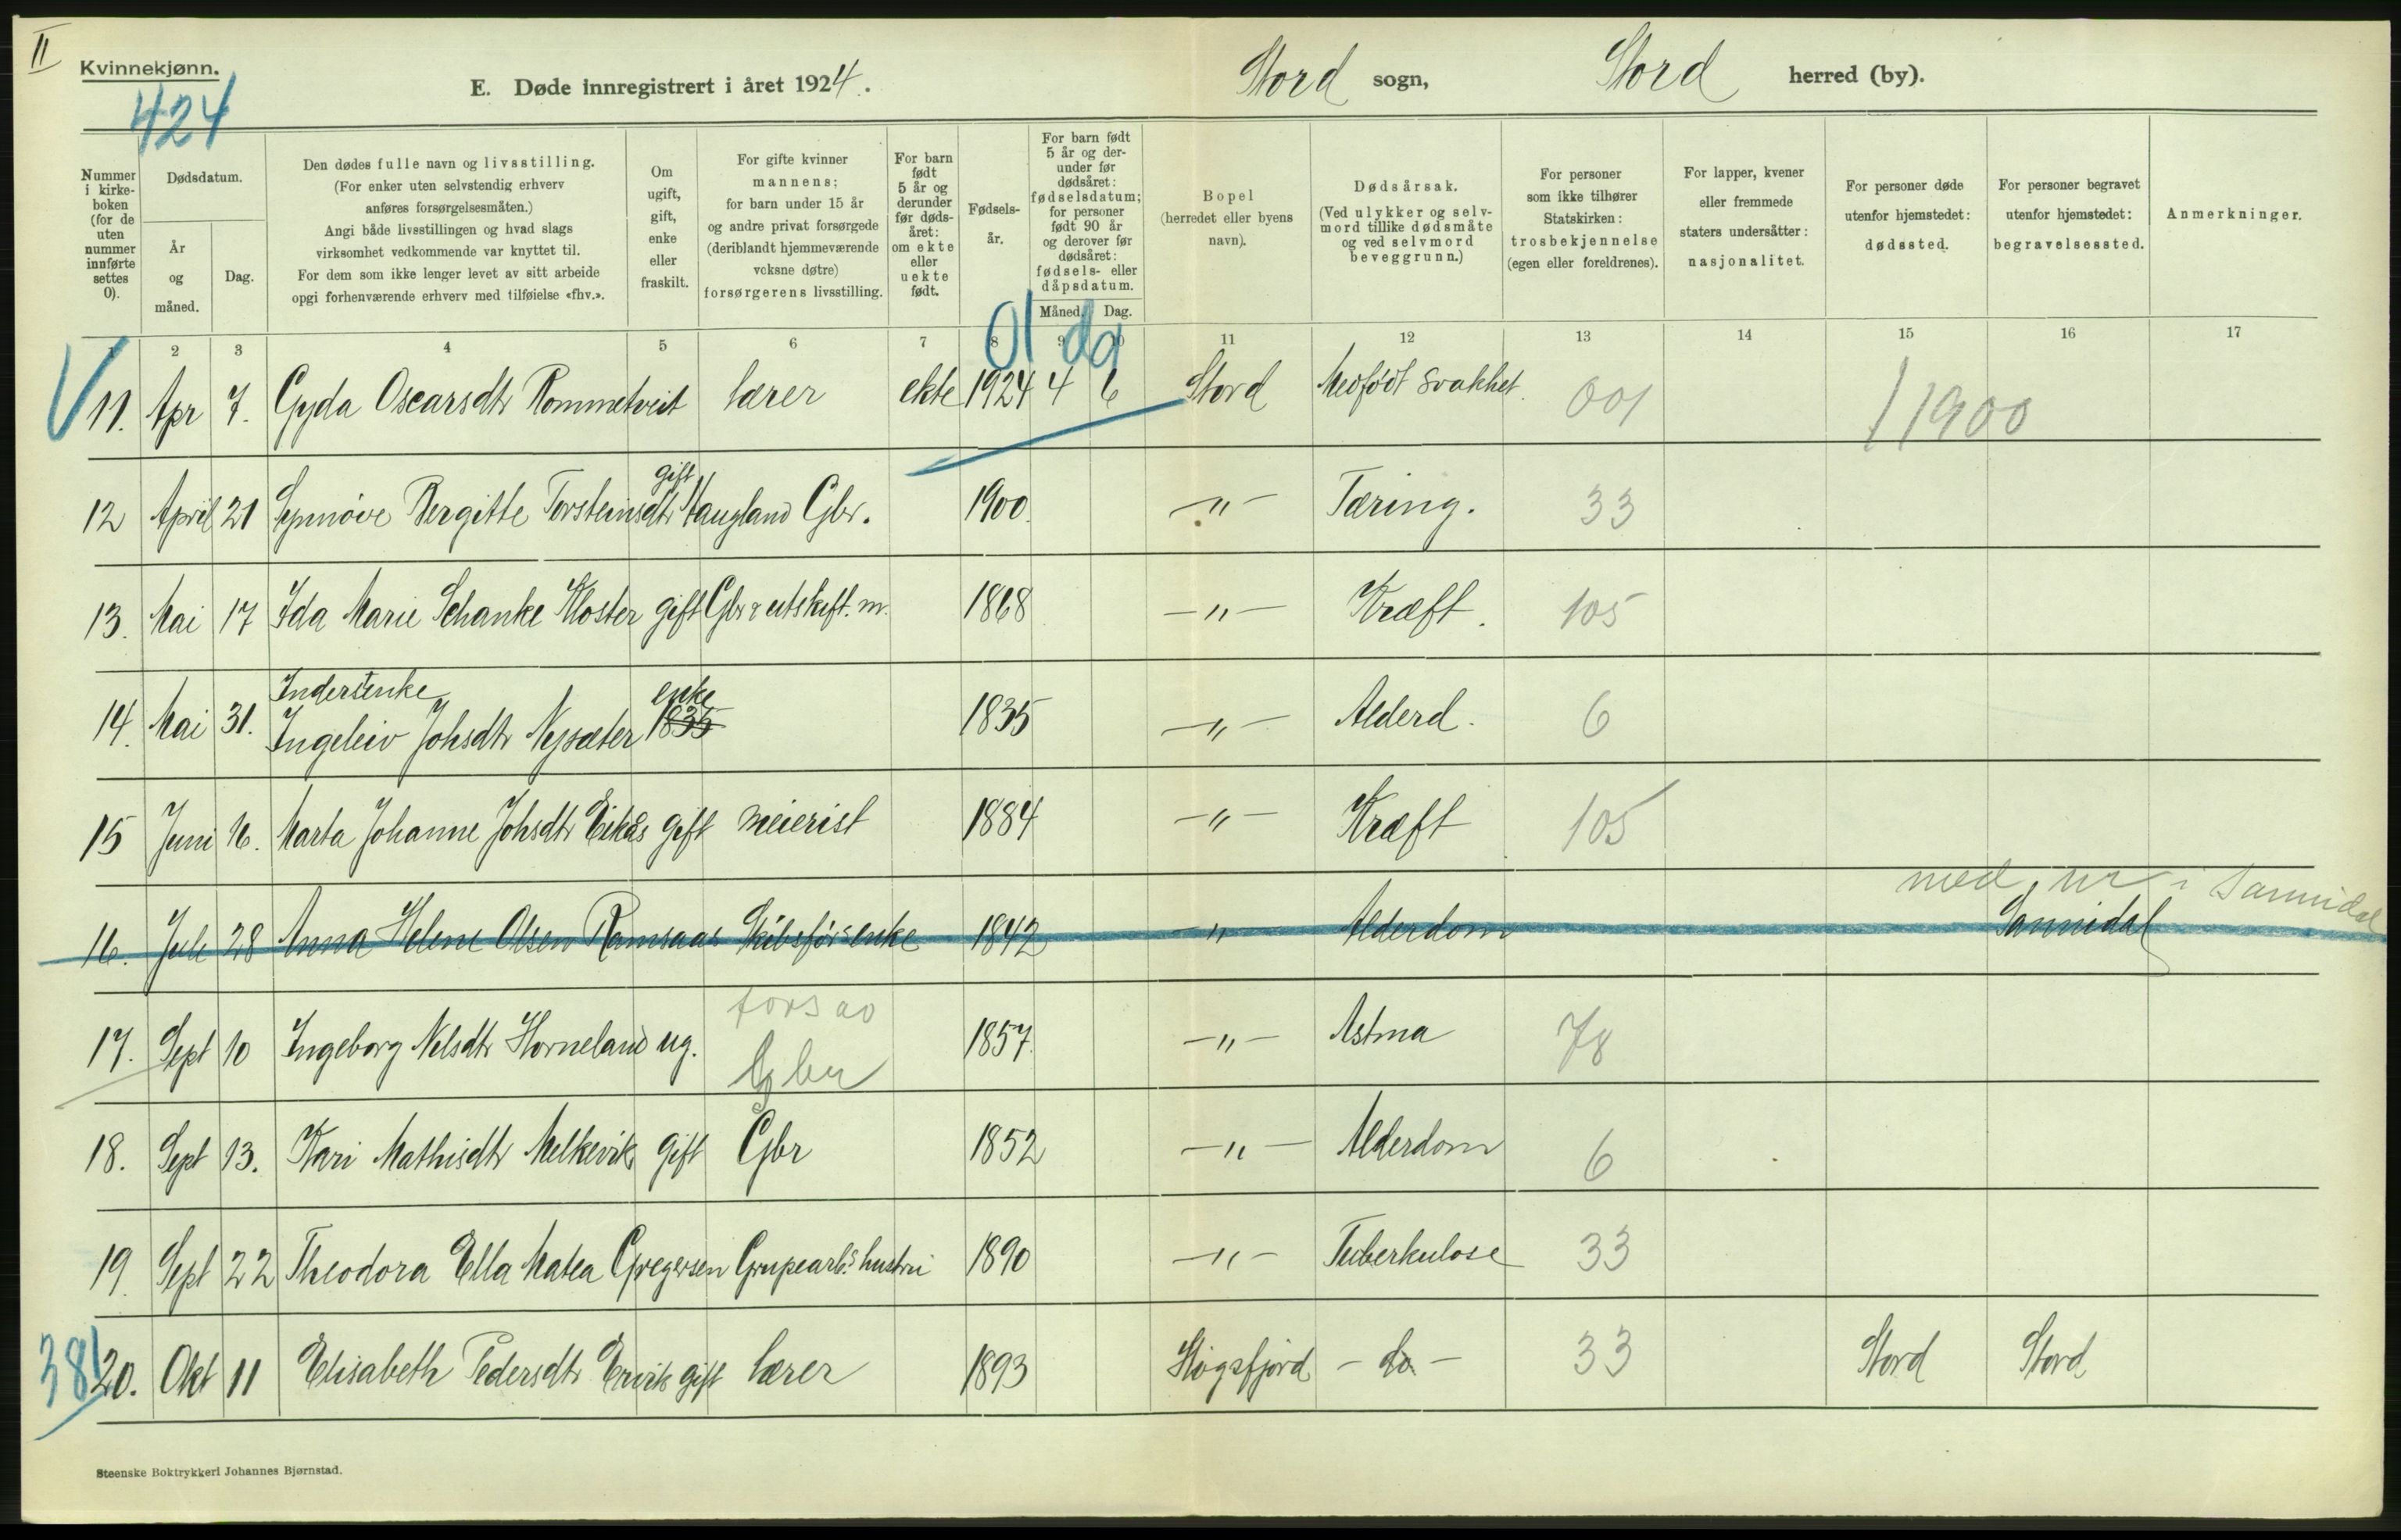 II
Kvinnekjønn.
424
E. Døde innregistrert i året 1924.
Stord sogn, Stord herred (by).
Nummer i kirke- boken (for de uten nummer innførte settes 0).
Dødsdatum.
År og måned.
Dag.
Den dødes fulle navn og livsstilling.
(For enker uten selvstendig erhverv
anføres forsørgelsesmåten.)
Angi både livsstillingen og hvad slags
virksomhet vedkommende var knyttet til.
For dem som ikke lenger levet av sitt arbeide
opgi forhenværende erhverv med tilføielse «fhv.».
Om ugift, gift, enke eller fraskilt.
For gifte kvinner
mannens;
for barn under 15 år
og andre privat forsørgede
(deriblandt hjemmeværende
voksne døtre)
forsørgerens livsstilling.
For barn født 5 år og derunder før døds- året: om ekte eller uekte født.
Fødsels- år.
For barn født 5 år og der- under før dødsåret: fødselsdatum; for personer født 90 år og derover før dødsåret: fødsels- eller dåpsdatum.
Måned. Dag.
Bopel
(herredet eller byens
navn).
Dødsårsak.
(Ved ulykker og selv-
mord tillike dødsmåte
og ved selvmord
beveggrunn.)
For personer
som ikke tilhører
Statskirken:
trosbekjennelse
(egen eller foreldrenes).
For lapper, kvener
eller fremmede
staters undersåtter:
nasjonalitet.
For personer døde
utenfor hjemstedet:
dødssted.
For personer begravet
utenfor hjemstedet:
begravelsessted.
Anmerkninger.
1 2 3 4 5 6 7 8 9 10 11 12 13 14 15 16 17
01 da
11. Apr 7. Gyda Oscarsdtr Rommetveit lærer ekte 1924 4 6 Stord Medfødt svakhet. 001 1900
gift
12 April 21 Synnöve Bergitte Torsteinsdtr Haugland Gbr. 1900. —"— Tæring. 33
13. Mai 17 Ida Marie Schanke Kloster gift Gbr & utskift.m. 1868 —"— Kræft. 105
Inderstenke enke
14. Mai 31. Ingeleiv Johsdtr Nysæter 1835 1835 —"— Alderd. 6
15 Juni 16. Marta Johanne Johsdtr Eikås gift meierist 1884 —"— Kræft 105
med, nr i Sannidal
16. Juli 28 Anna Helene Olsen Ramsaas Skibsförsenke 1842 —"— Alderdom Sannidal
fors av
17. Sept 10 Ingeborg Nilsdtr Horneland ug. Gbr 1857. —"— Astma 78
18. Sept 13. Kari Mathisdtr Melkevik gift Gbr 1852 —"— Alderdom 6
19. Sept 22 Theodora Ella Matea Gregersen Grupearb.s hustru 1890 —"— Tuberkulose 33
381
20. Okt 11 Elisabeth Pedersdtr Ervik gift lærer 1893 Høgsfjord — do — 33 Stord Stord
Steenske Boktrykkeri Johannes Bjørnstad.